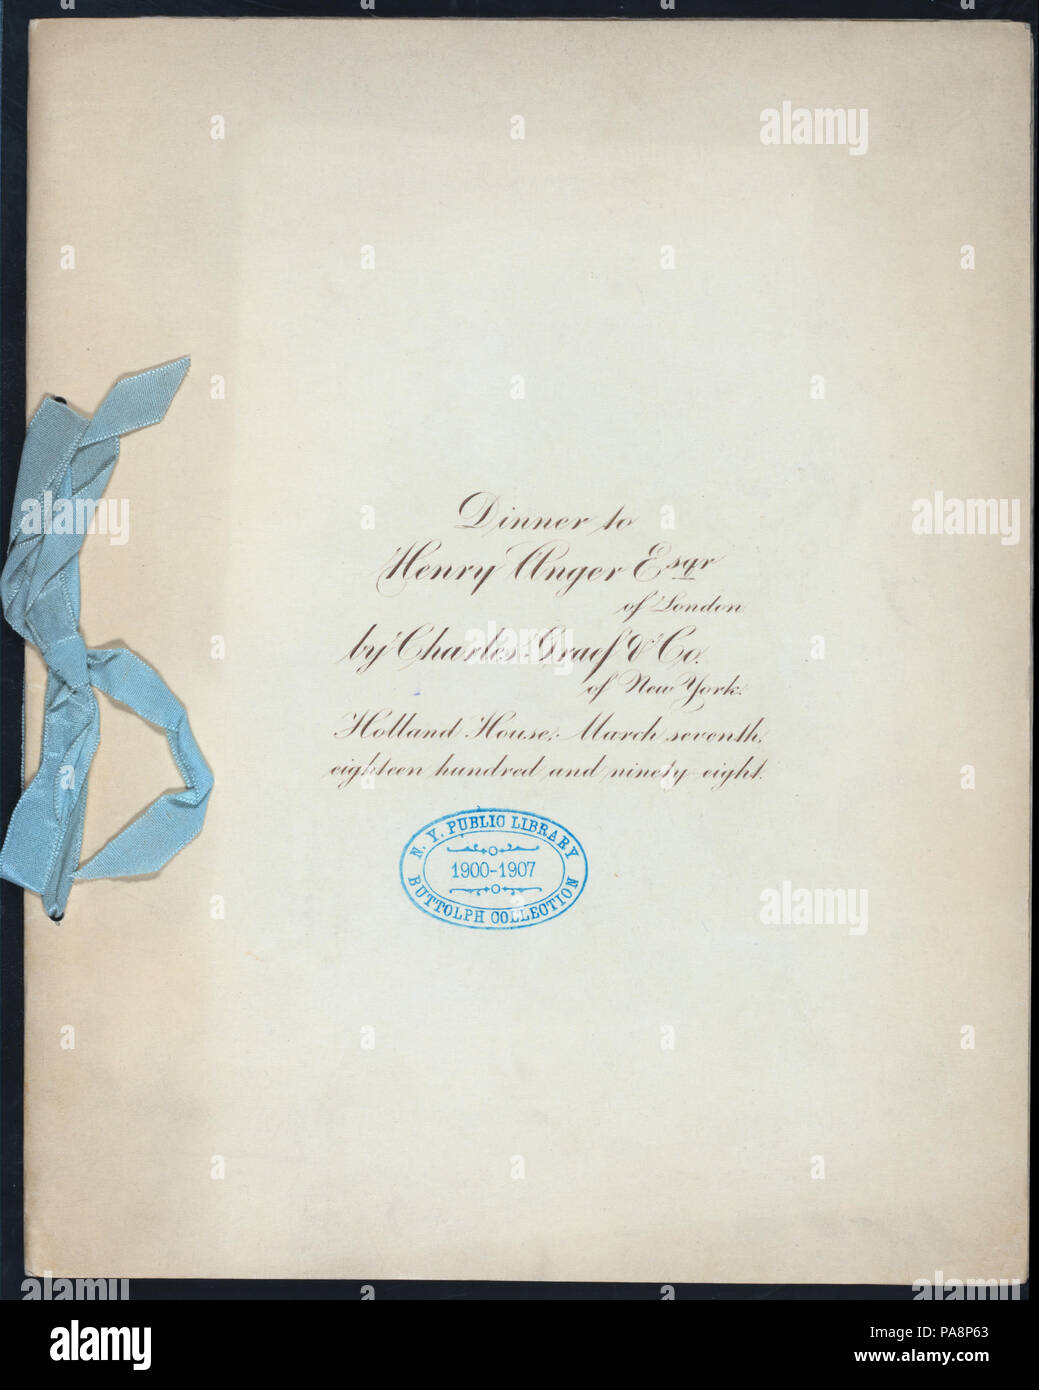 Dinner to
Henry Unger Esqr
of London
by Charles Graef & Co.
of New York.
Holland House, March seventh,
eighteen hundred and ninety-eight.
N. Y. PUBLIC LIBRARY
1900-1907
BUTTOLPH COLLECTION
alamy
alamy
alamy
alamy
alamy
alamy
alamy
Image ID: PA8P63
www.alamy.com